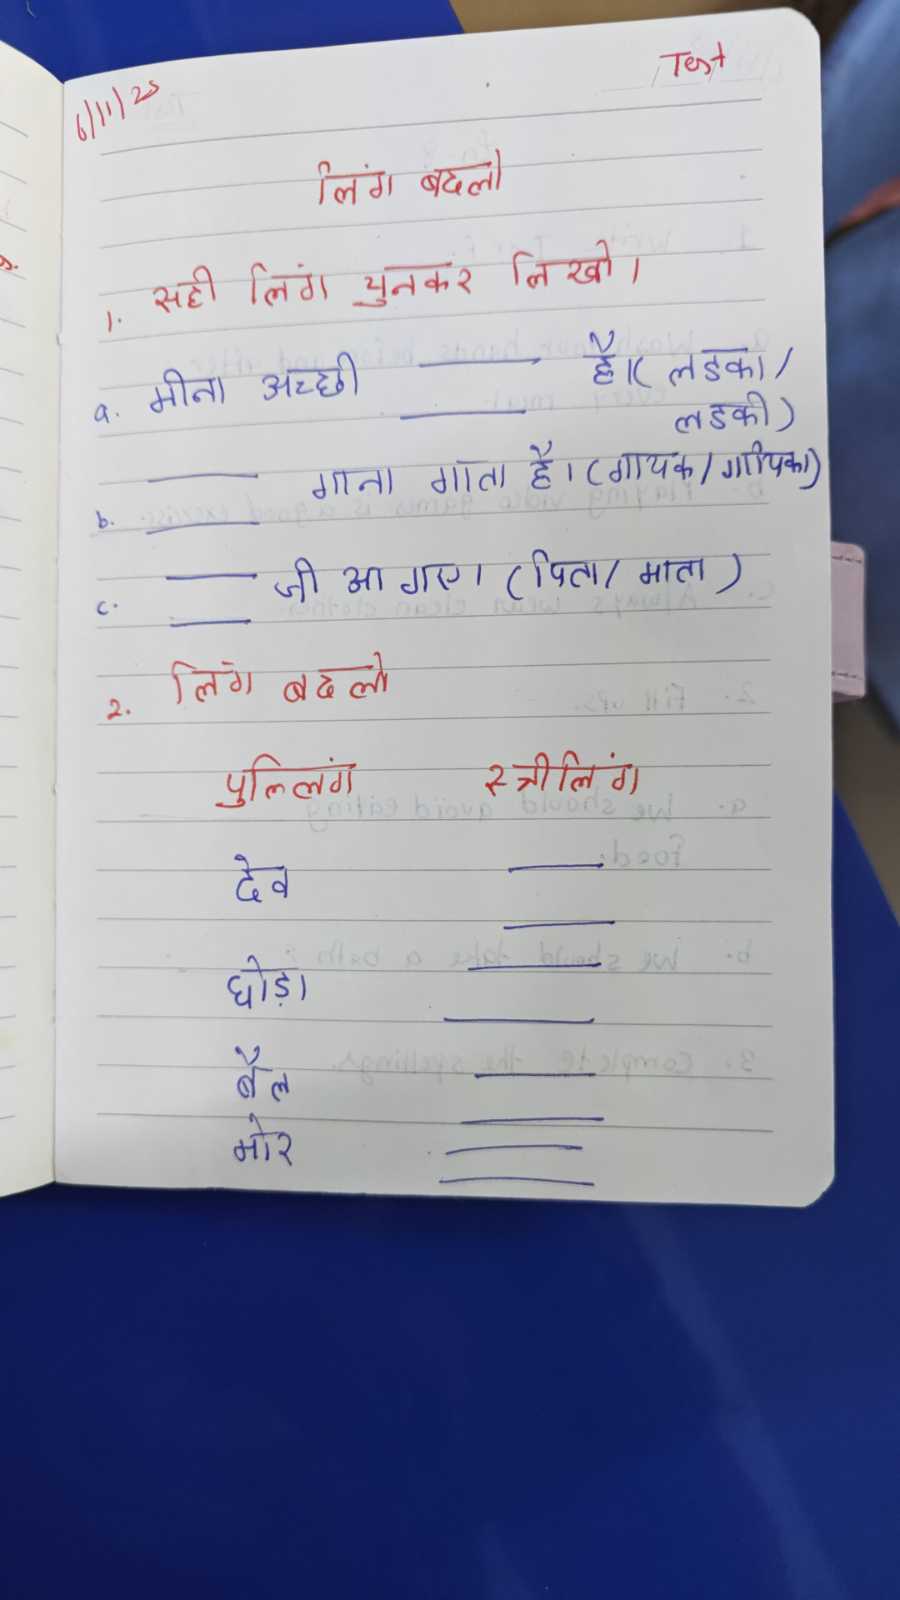 6/11/25
Test
लिंग बदलो
1. सही लिंग चुनकर लिखो।
a. मीना अच्छी ____ है।( लडका /
लडकी )
b. ____ गाना गाता है। (गायक / गायिका)
c. ____ जी आ गए। ( पिता / माता )
2. लिंग बदलो
पुल्लिंग स्त्रीलिंग
देव ____
घोड़ा ____
बैल ____
मोर ____